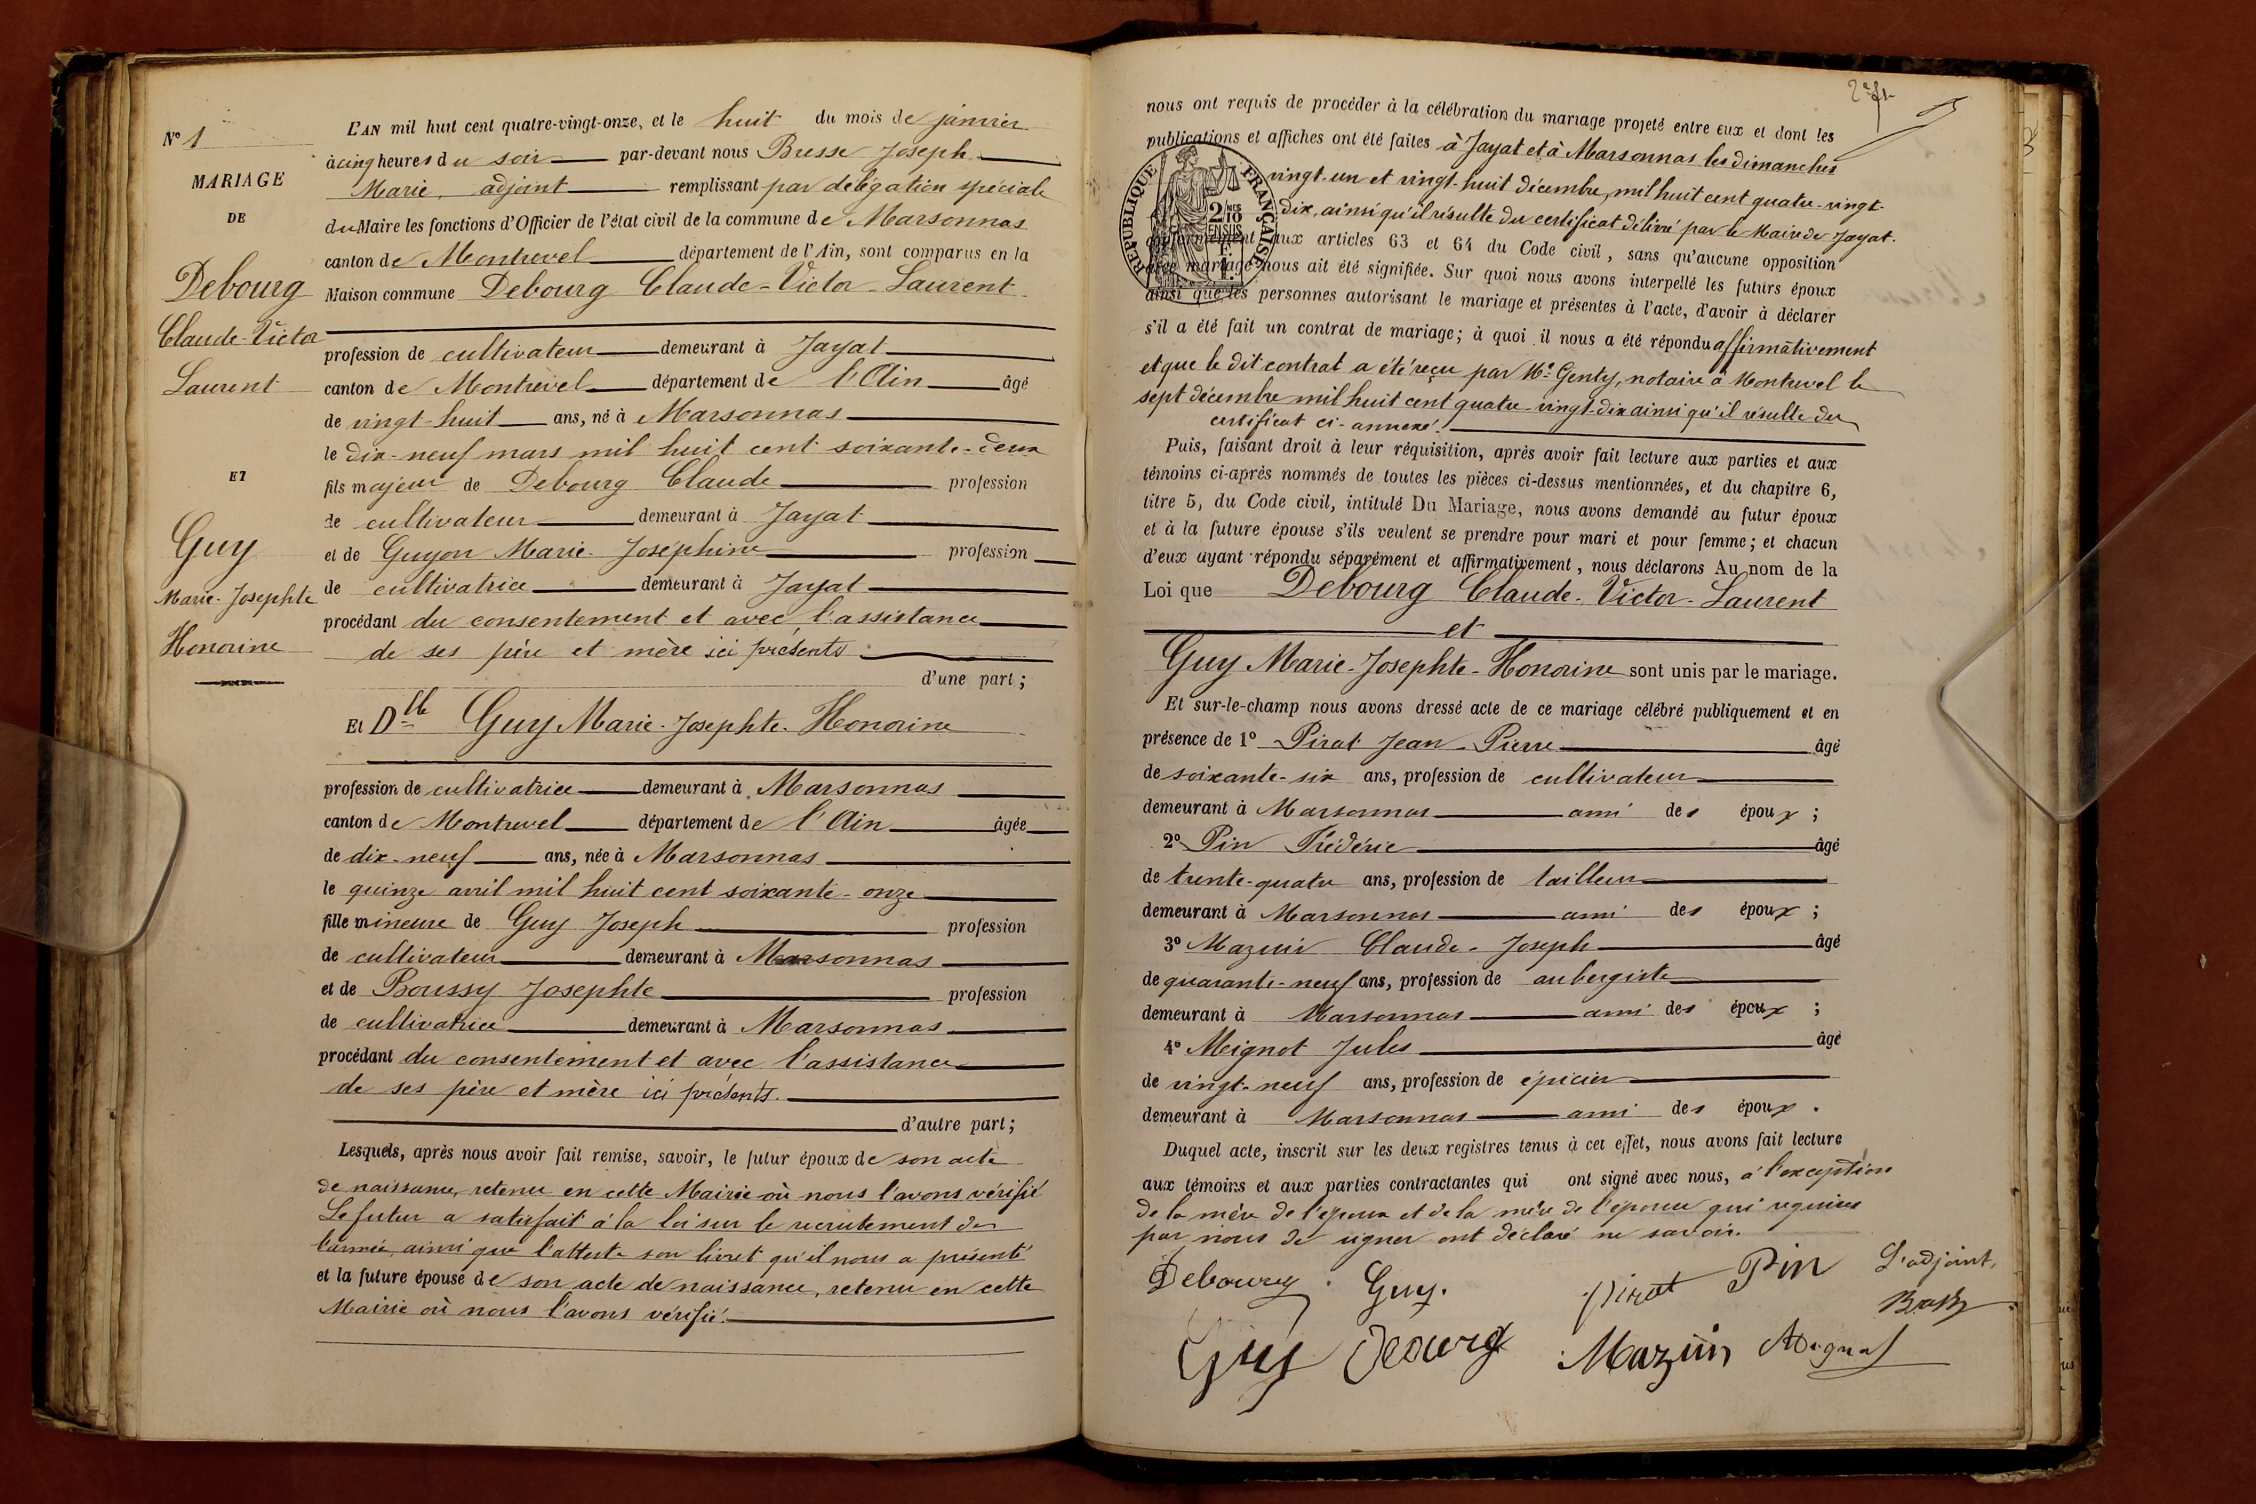 N° 1
MARIAGE
DE
Debourg
Claude-Victor
Laurent
ET
Guy
Marie-Josephte
Honorine
L'AN mil huit cent quatre-vingt-onze, et le huit du mois de janvier
à cinq heures du soir par-devant nous Bresse Joseph
Marie, adjoint remplissant par délégation spéciale
du Maire les fonctions d'Officier de l'état civil de la commune de Marsonnas
canton de Montrevel département de l'Ain, sont comparus en la
Maison commune Debourg Claude-Victor-Laurent
profession de cultivateur demeurant à Jayat
canton de Montrevel département de l'Ain âgé
de vingt-huit ans, né à Marsonnas
le dix-neuf mars mil huit cent soixante-deux
fils majeur de Debourg Claude profession
de cultivateur demeurant à Jayat
et de Guyon Marie-Joséphine profession
de cultivatrice demeurant à Jayat
procédant du consentement et avec l'assistance
de ses père et mère ici présents
d'une part ;
Et Dlle Guy Marie-Josephte-Honorine
profession de cultivatrice demeurant à Marsonnas
canton de Montrevel département de l'Ain âgée
de dix-neuf ans, née à Marsonnas
le quinze avril mil huit cent soixante-onze
fille mineure de Guy Joseph profession
de cultivateur demeurant à Marsonnas
et de Boussy Josephte profession
de cultivatrice demeurant à Marsonnas
procédant du consentement et avec l'assistance
de ses père et mère ici présents.
d'autre part ;
Lesquels, après nous avoir fait remise, savoir, le futur époux de son acte
de naissance, retenu en cette Mairie où nous l'avons vérifié
Le futur a satisfait à la loi sur le recrutement de
l'armée, ainsi que l'atteste son livret qu'il nous a présenté
et la future épouse de son acte de naissance, retenu en cette
Mairie où nous l'avons vérifié.
nous ont requis de procéder à la célébration du mariage projeté entre eux et dont les
publications et affiches ont été faites à Jayat et à Marsonnas les dimanches
vingt-un et vingt-huit décembre, mil huit cent quatre-vingt-
dix, ainsi qu'il résulte du certificat délivré par le Maire de Jayat.
conformément aux articles 63 et 64 du Code civil, sans qu'aucune opposition
à ce mariage nous ait été signifiée. Sur quoi nous avons interpellé les futurs époux
ainsi que les personnes autorisant le mariage et présentes à l'acte, d'avoir à déclarer
s'il a été fait un contrat de mariage ; à quoi il nous a été répondu affirmativement
et que le dit contrat a été reçu par Me Genty, notaire à Montrevel le
sept décembre mil huit cent quatre-vingt-dix ainsi qu'il résulte du
certificat ci-annexé.
Puis, faisant droit à leur réquisition, après avoir fait lecture aux parties et aux
témoins ci-après nommés de toutes les pièces ci-dessus mentionnées, et du chapitre 6,
titre 5, du Code civil, intitulé Du Mariage, nous avons demandé au futur époux
et à la future épouse s'ils veulent se prendre pour mari et pour femme ; et chacun
d'eux ayant répondu séparément et affirmativement, nous déclarons Au nom de la
Loi que Debourg Claude-Victor-Laurent
et
Guy Marie-Josephte-Honorine sont unis par le mariage.
Et sur-le-champ nous avons dressé acte de ce mariage célébré publiquement et en
présence de 1° Pirat Jean-Pierre âgé
de soixante-six ans, profession de cultivateur
demeurant à Marsonnas ami des époux ;
2° Pin Frédéric âgé
de trente-quatre ans, profession de tailleur
demeurant à Marsonnas ami des époux ;
3° Mazuir Claude-Joseph âgé
de quarante-neuf ans, profession de aubergiste
demeurant à Marsonnas ami des époux ;
4° Meignot Jules âgé
de vingt-neuf ans, profession de épicier
demeurant à Marsonnas ami des époux.
Duquel acte, inscrit sur les deux registres tenus à cet effet, nous avons fait lecture
aux témoins et aux parties contractantes qui ont signé avec nous, à l'exception
de la mère de l'époux et de la mère de l'épouse qui requises
par nous de signer ont déclaré ne savoir.
Debourg. Guy. Pirat Pin L'adjoint,
Guy Mazuir
RÉPUBLIQUE FRANÇAISE